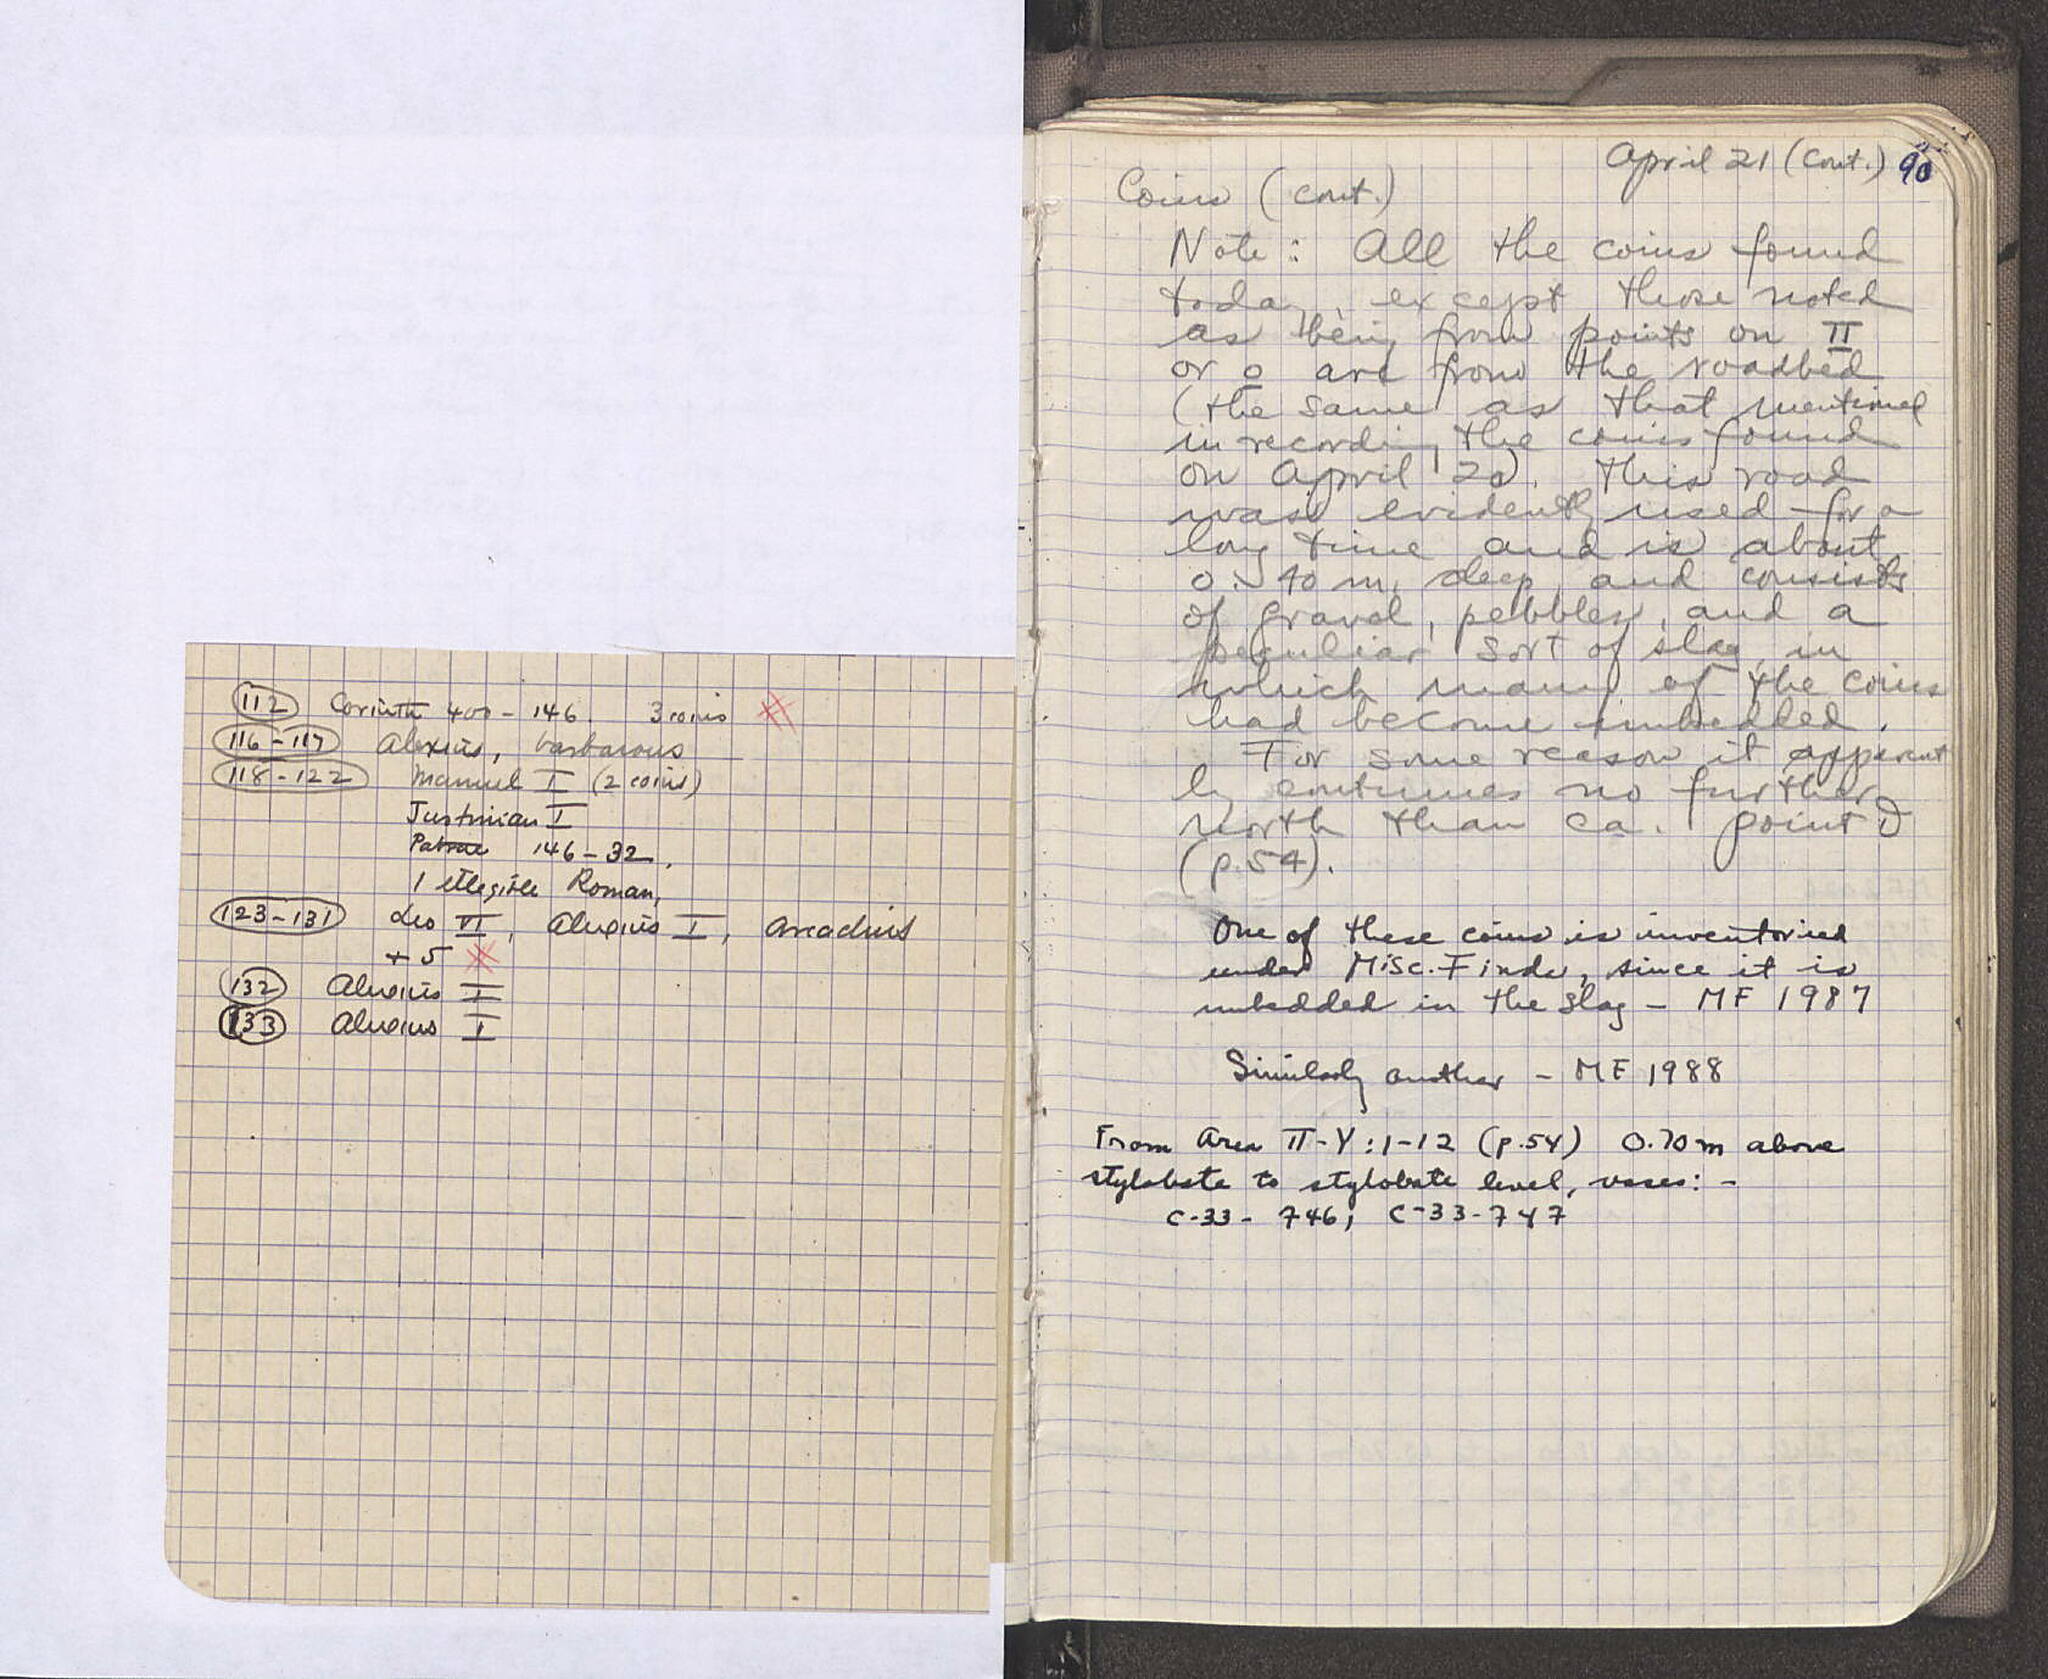 112 Corinth 400-146. 3 coins #
116-117 Alexius, barbarous
118-122 Manuel I (2 coins)
Justinian I
Patrae 146-32,
1 illegible Roman,
123-131 Leo VI, Alexius I, Arcadius
+ 5 #
132 Alexius I
133 Alexius I
April 21 (cont.) 90
Coins (cont.)
Note: All the coins found
today, except those noted
as being from points on II
or o are from the roadbed
(the same as that mentioned
in recording the coins found
on April 20). This road
was evidently used for a
long time and is about
0.40 m. deep and consists
of gravel, pebbles, and a
peculiar sort of slag in
which many of the coins
had become imbedded.
For some reason it apparent
ly continues no further
north than ca. point D
(p.54).
One of these coins is inventoried
under Misc. Finds, since it is
imbedded in the slag - MF 1987
Similarly another - MF 1988
From Area II-Y:1-12 (p.54) 0.70m above
stylobate to stylobate level, vases: -
C-33-746; C-33-747